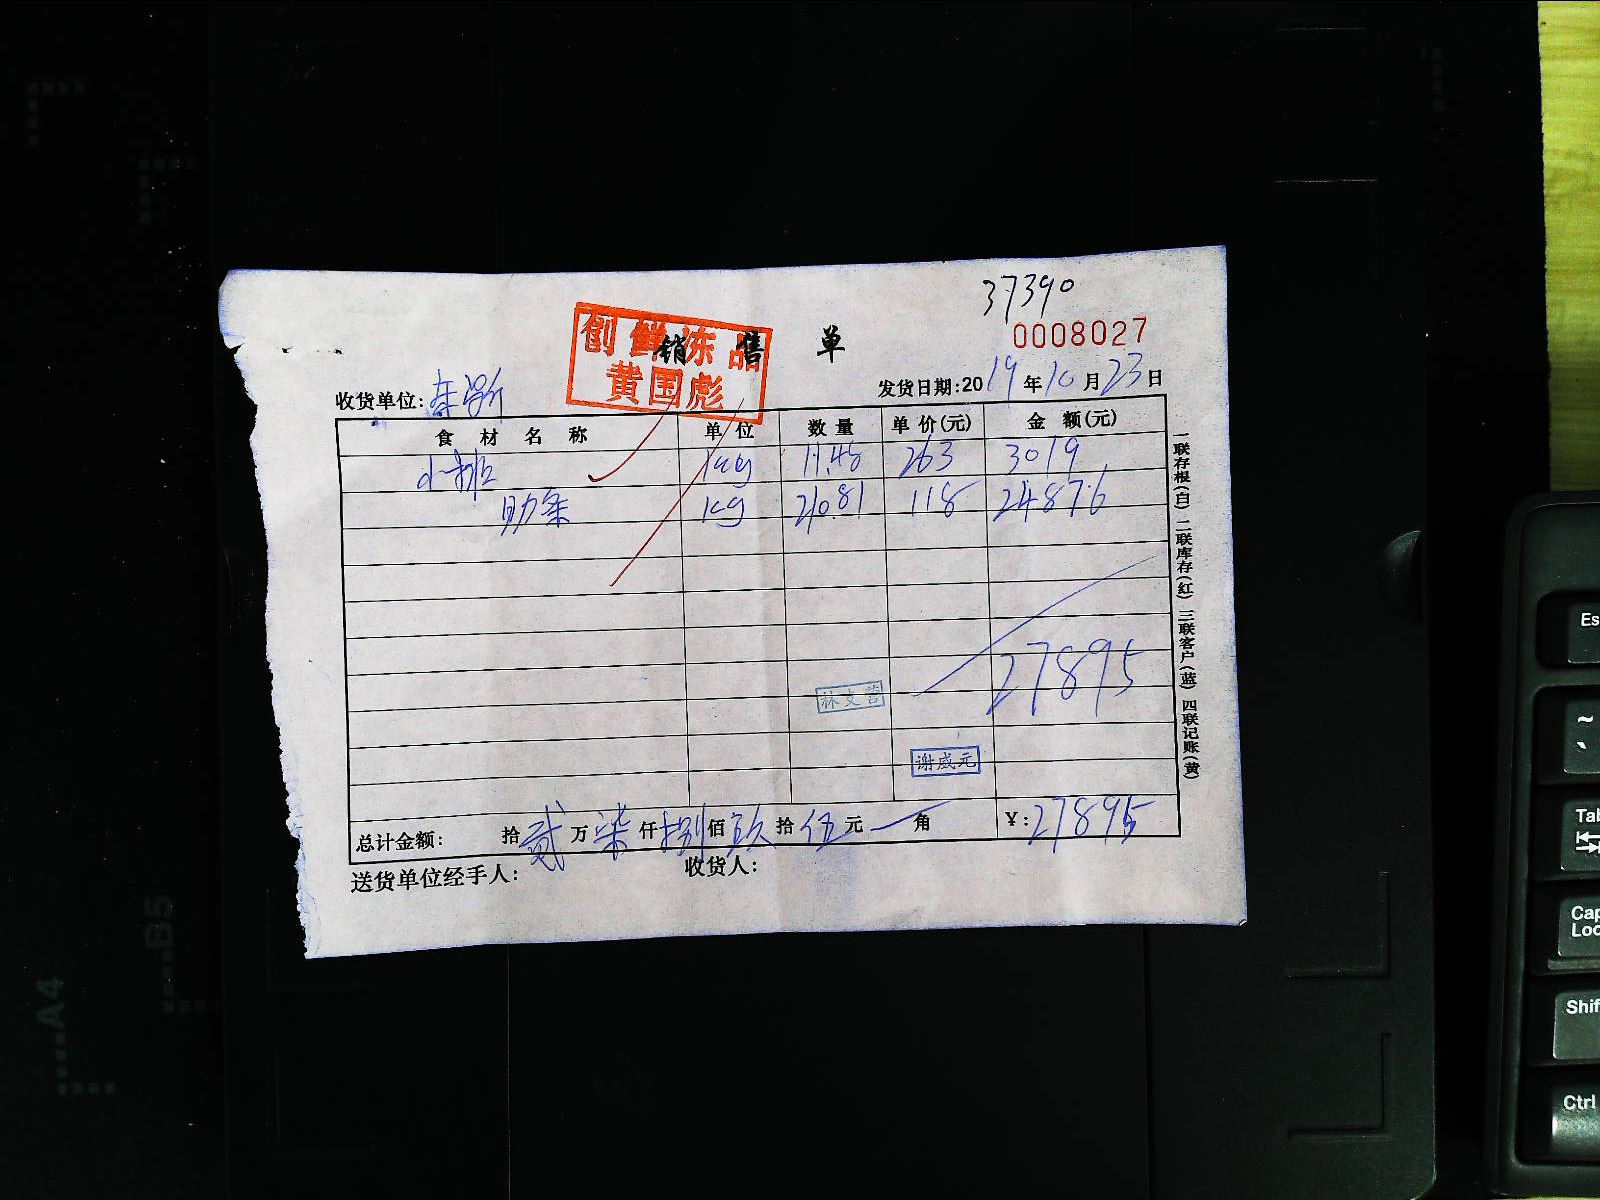 37390
创鲜冻品
黄国彪
销售单
0008027
收货单位:
发货日期:2019年10月23日
食材名称 单位 数量 单价(元) 金额(元)
小排 kg 11.48 263 3019
助条 kg 210.81 118 24876
27895
林文营
谢威元
总计金额: 拾贰万柒仟捌佰玖拾伍元一角 ¥:27895
送货单位经手人: 收货人:
一联存根(白) 二联库存(红) 三联客户(蓝) 四联记账(黄)
A4
B5
Es
~
`
Tab
Cap
Loc
Shif
Ctrl